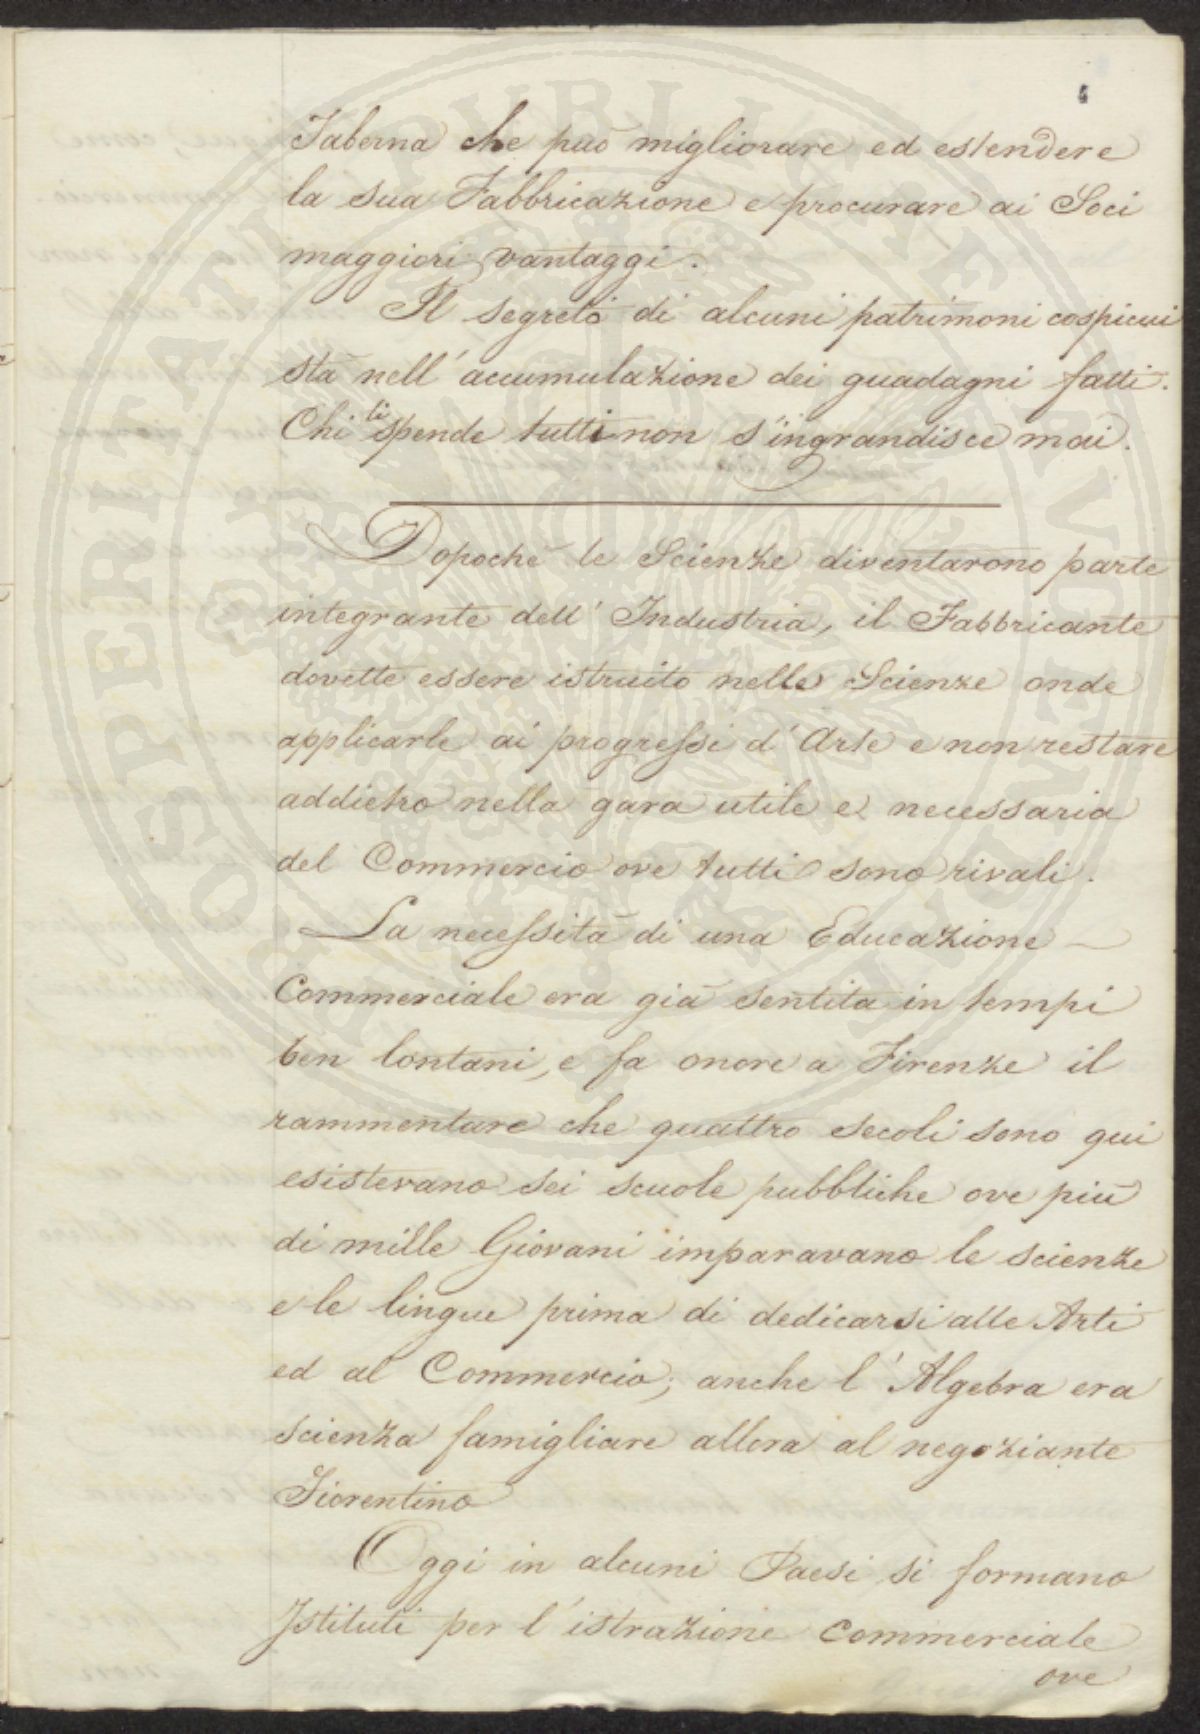 Taberna che può migliorare ed estendere
la sua Fabbricazione e procurare ai Soci
maggiori vantaggi.
Il segreto di alcuni patrimoni cospicui
stà nell' accumulazione dei guadagni fatti.
Chi li spende tutti non s'ingrandisce mai.
Dopochè le Scienze diventarono parte
integrante dell' Industria, il Fabbricante
dovette essere istruito nelle Scienze onde
applicarle ai progressi d' Arte e non restare
addietro nella gara utile e necessaria
del Commercio ove tutti sono rivali.
La necessità di una Educazione
Commerciale era già sentita in tempi
ben lontani, e fa onore a Firenze il
rammentare che quattro secoli sono qui
esistevano sei scuole pubbliche ove più
di mille Giovani imparavano le scienze
e le lingue prima di dedicarsi alle Arti
ed al Commercio; anche l' Algebra era
scienza famigliare allora al negoziante
Fiorentino
Oggi in alcuni Paesi si formano
Istituti per l' istrazione Commerciale
ove
PROSPERITATI PUBLICAE